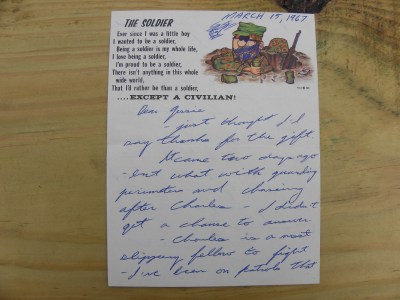 THE SOLDIER
Ever since I was a little boy
I wanted to be a soldier,
Being a soldier is my whole life,
I love being a soldier,
I'm proud to be a soldier,
There isn't anything in this whole
wide world,
That I'd rather be than a soldier,
....EXCEPT A CIVILIAN!
MARCH 15, 1967
Dear
- just thought I'd
say thanks for the gift.
It came two days ago
- but what with guarding
perimeters and chasing
after Charles - I didn't
get a chance to answer
- Charles is a most
slippery fellow to fight
- I've been on patrols that